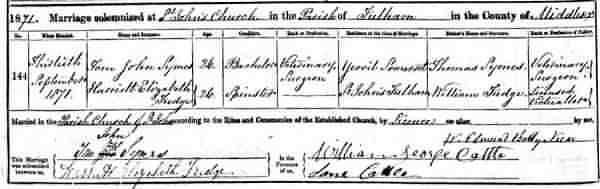 1871. Marriage solemnized at St John's Church in the Parish of Fulham in the County of Middlesex
No. When Married. Name and Surname. Age. Condition. Rank or Profession. Residence at the time of Marriage. Father's Name and Surname. Rank or Profession of Father.
144 Thirtieth September 1871. John Symes 26 Bachelor Veterinary Surgeon Yeovil Somerset Thomas Symes Veterinary Surgeon
Harriett Elizabeth Fudge 26 Spinster St Johns Fulham William Fudge Licensed Victualler
Married in the Parish Church of St John according to the Rites and Ceremonies of the Established Church, by Licence or after by me,
This Marriage was solemnized between us,
John Symes
Harriett Elizabeth Fudge
In the Presence of us,
William George Cattle
Cattle